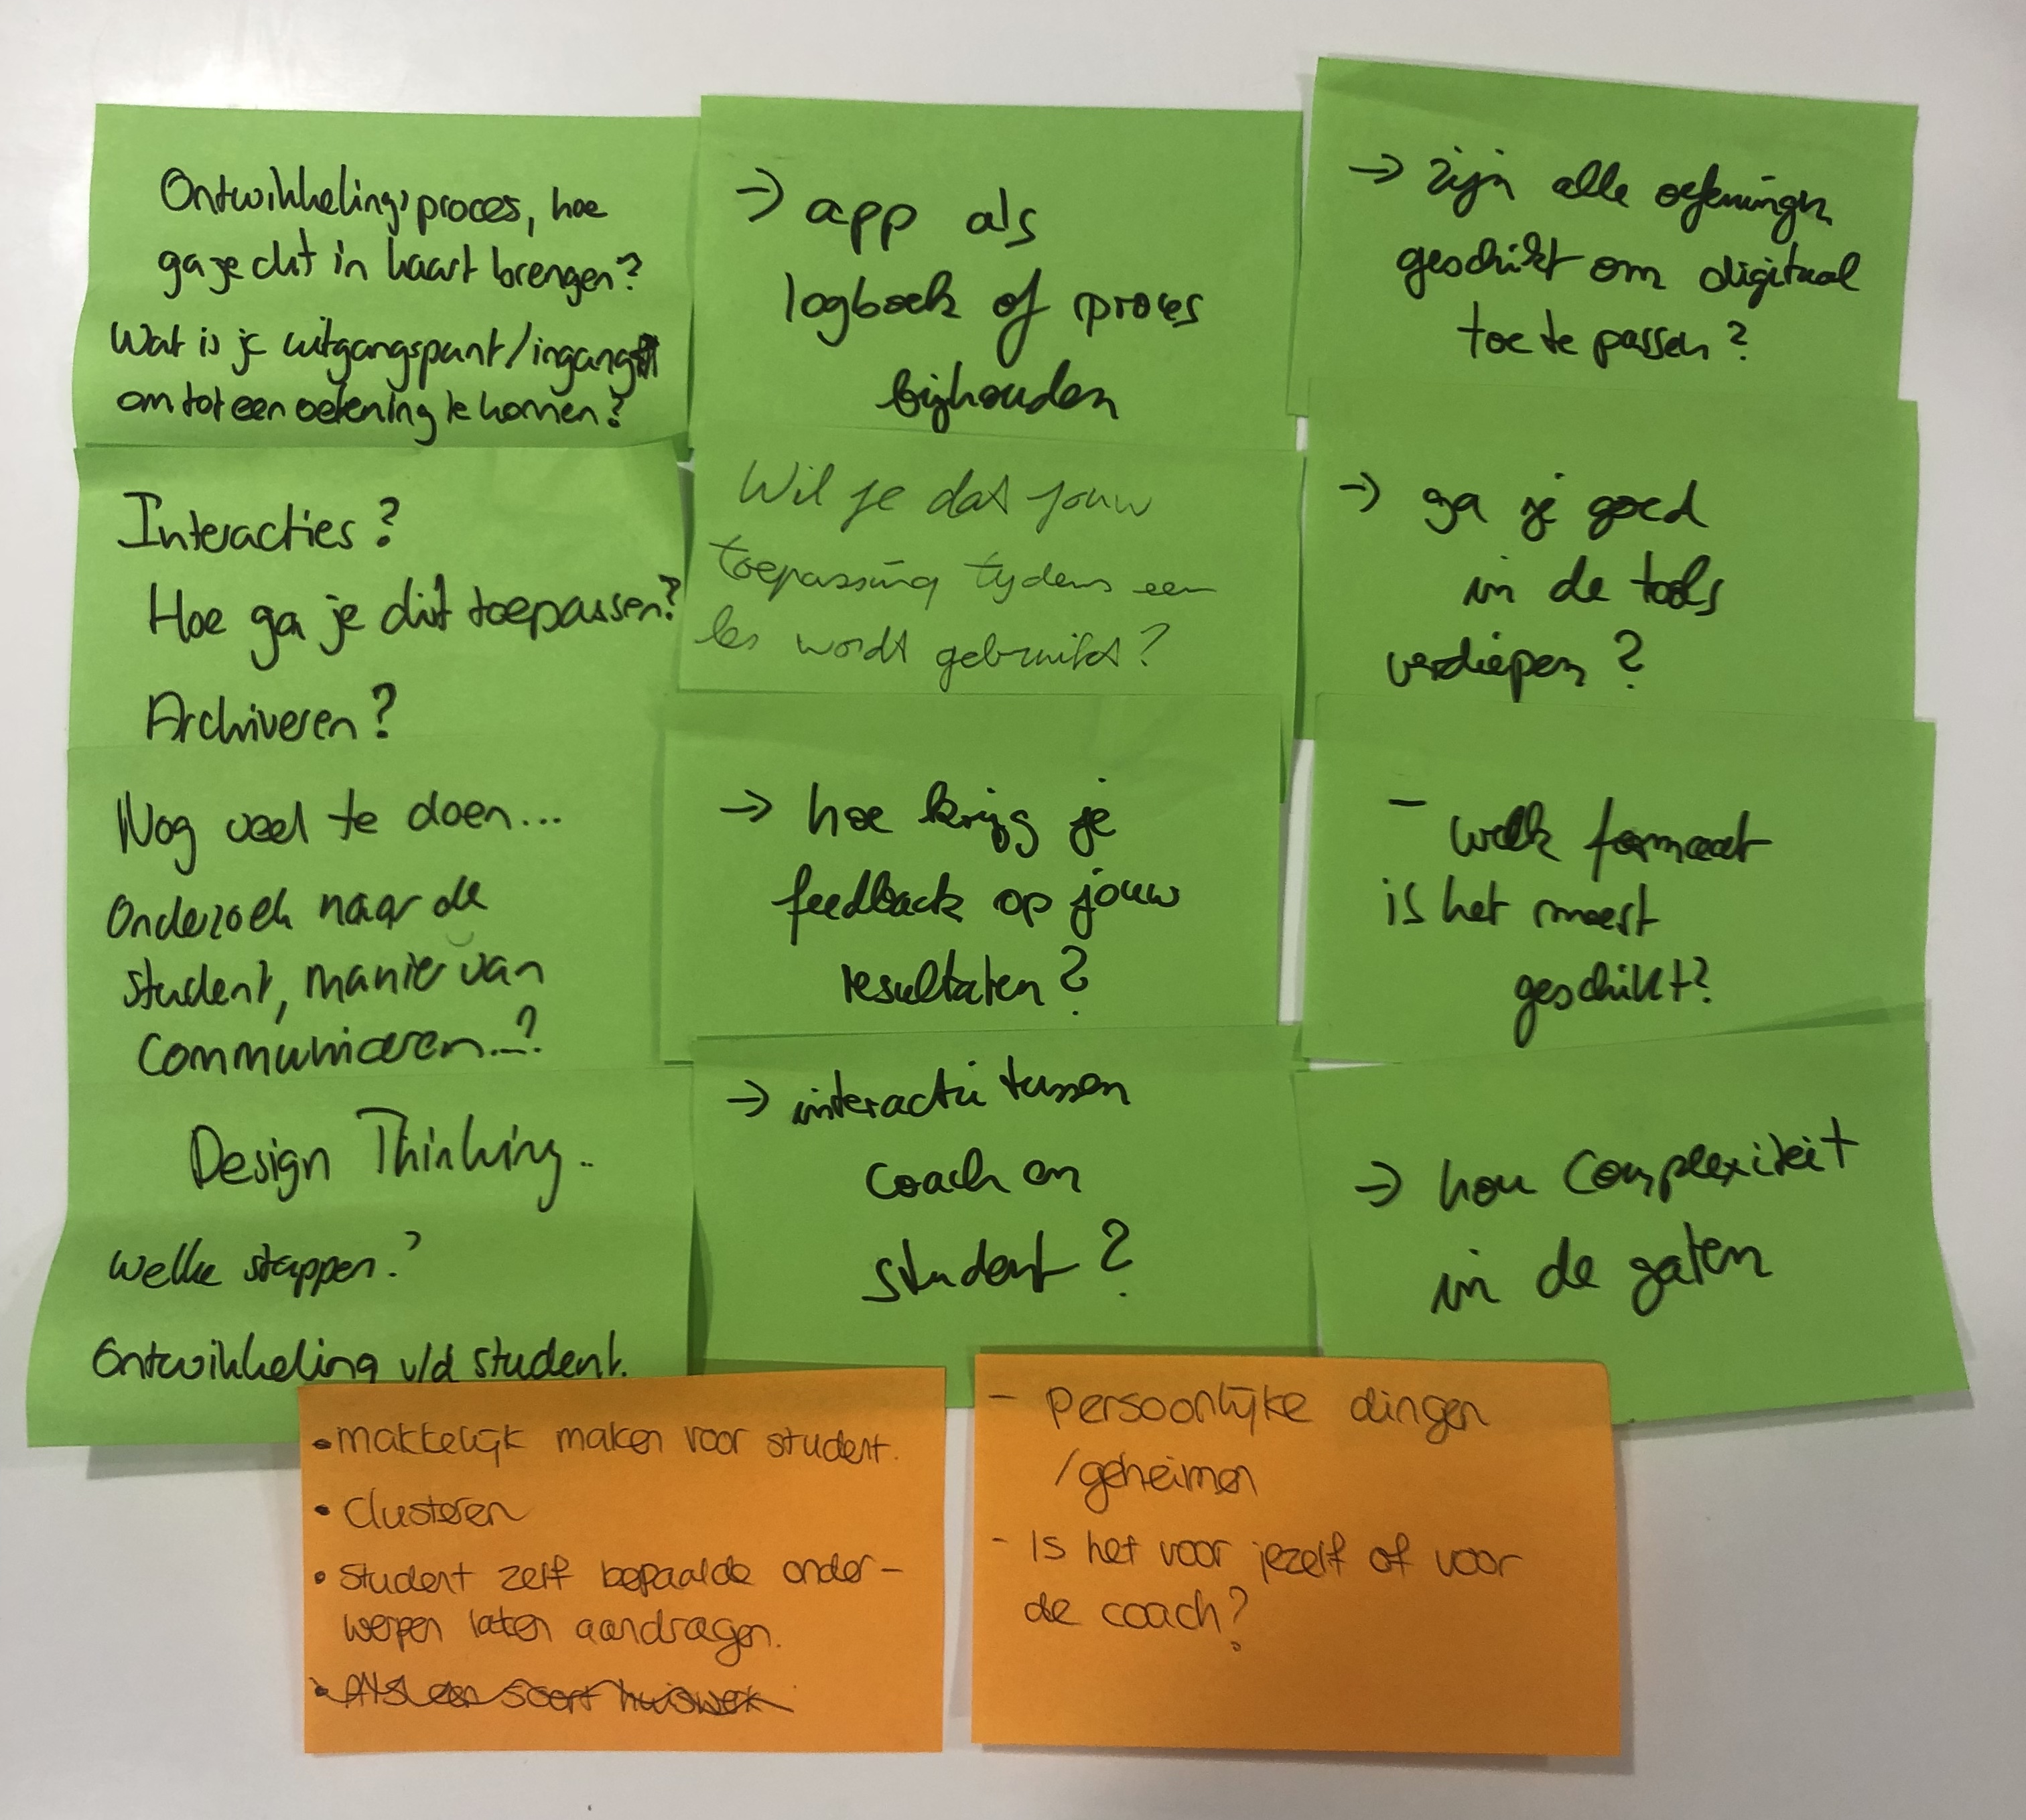 Ontwikkelingsproces, hoe
ga je dit in kaart brengen?
Wat is je uitgangspunt/ingang
om tot een oefening te komen?
Interacties?
Hoe ga je dit toepassen?
Archiveren?
Nog veel te doen...
Onderzoek naar de
student, manier van
Communiceren...?
Design Thinking..
Welke stappen?
Ontwikkeling v/d student.
→ app als
logboek of proces
bijhouden
Wil je dat jouw
toepassing tijdens een
les wordt gebruikt?
→ hoe krijg je
feedback op jouw
resultaten?
→ interactie tussen
coach en
student?
→ zijn alle oefeningen
geschikt om digitaal
toe te passen?
→ ga je goed
in de tools
verdiepen?
- welk formaat
is het meest
geschikt?
→ hou complexiteit
in de gaten
• makkelijk maken voor student.
• Clusteren
• student zelf bepaalde onder-
werpen laten aandragen.
• Als een soort huiswerk
- Persoonlijke dingen
/geheimen
- Is het voor jezelf of voor
de coach?